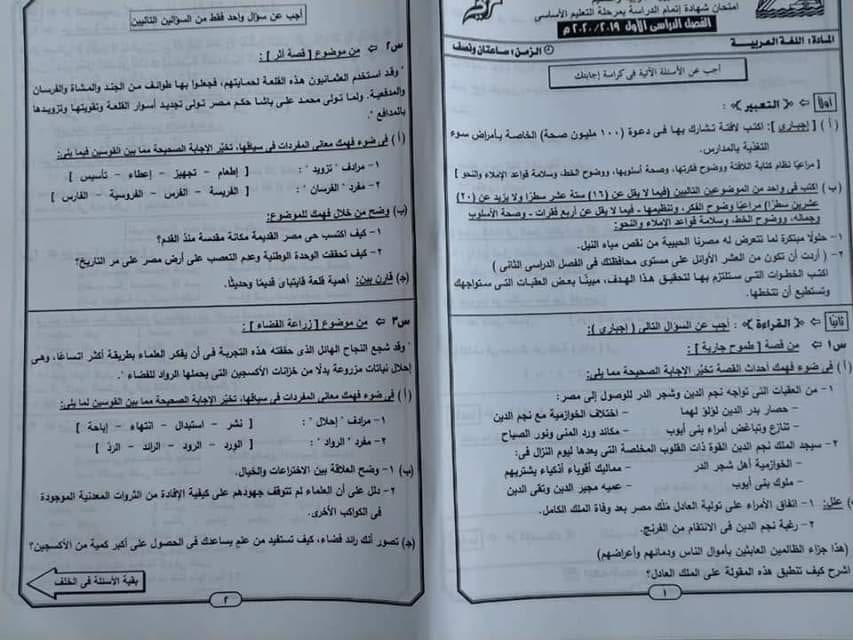 امتحان شهادة إتمام الدراسة بمرحلة التعليم الأساسى
الفصل الدراسى الأول ٢٠١٩/٢٠٢٠م
المادة: اللغة العربية
الزمن: ساعتان ونصف
أجب عن الأسئلة الآتية فى كراسة إجابتك
أولاً ⇦ « التعبير » :
( أ ) [ إجبارى ]: اكتب لافتة تشارك بها فى دعوة (١٠٠ مليون صحة) الخاصة بأمراض سوء
التغذية بالمدارس.
[ مراعيًا نظام كتابة اللافتة ووضوح فكرتها، وصحة أسلوبها، ووضوح الخط، وسلامة قواعد الإملاء والنحو ]
(ب) اكتب فى واحد من الموضوعين التاليين (فيما لا يقل عن (١٦) ستة عشر سطرًا ولا يزيد عن (٢٠)
عشرين سطرًا) مراعيًا وضوح الفكر، وتنظيمها - فيما لا يقل عن أربع فقرات - وصحة الأسلوب
وجماله، ووضوح الخط، وسلامة قواعد الإملاء والنحو:
١- حلولًا مبتكرة لما تتعرض له مصرنا الحبيبة من نقص مياه النيل.
٢- ( أردت أن تكون من العشر الأوائل على مستوى محافظتك فى الفصل الدراسى الثانى )
اكتب الخطوات التى ستلتزم بها لتحقيق هذا الهدف، مبينًا بعض العقبات التى ستواجهك
وتستطيع أن تتخطها.
ثانيًا ⇦ « القراءة » : أجب عن السؤال التالى ( إجبارى ):
س١ ⇦ من قصة [ طموح جارية ]:
( أ ) فى ضوء فهمك أحداث القصة تخيّر الإجابة الصحيحة مما يلى:
١- من العقبات التى تواجه نجم الدين وشجر الدر للوصول إلى مصر:
- حصار بدر الدين لؤلؤ لهما - اختلاف الخوازمية مع نجم الدين
- تنازع وتباغض أمراء بنى أيوب - مكائد ورد المنى ونور الصباح
٢- سيجد الملك نجم الدين القوة ذات القلوب المخلصة التى يعدها ليوم النزال فى:
- الخوازمية أهل شجر الدر - مماليك أقوياء أذكياء يشتريهم
- ملوك بنى أيوب - عميه مجير الدين وتقى الدين
) علل: ١- اتفاق الأمراء على تولية العادل مُلك مصر بعد وفاة الملك الكامل.
٢- رغبة نجم الدين فى الانتقام من الفرنج.
(هذا جزاء الظالمين العابثين بأموال الناس ودمائهم وأعراضهم)
اشرح كيف تنطبق هذه المقولة على الملك العادل؟
١
أجب عن سؤال واحد فقط من السؤالين التاليين
س٢ ⇦ من موضوع [ قصة أثر ]:
" وقد استخدم العثمانيون هذه القلعة لحمايتهم، فجعلوا بها طوائف من الجند والمشاة والفرسان
والمدفعية. ولما تولى محمد على باشا حكم مصر تولى تجديد أسوار القلعة وتقويتها وتزويدها
بالمدافع ".
( أ ) فى ضوء فهمك معانى المفردات فى سياقها، تخيّر الإجابة الصحيحة مما بين القوسين فيما يلى:
١- مرادف " تزويد " : [ إطعام - تجهيز - إعطاء - تأسيس ]
٢- مفرد " الفرسان " : [ الفريسة - الفرس - الفروسية - الفارس ]
(ب) وضح من خلال فهمك للموضوع:
١- كيف اكتسب حى مصر القديمة مكانة مقدسة منذ القدم؟
٢- كيف تحققت الوحدة الوطنية وعدم التعصب على أرض مصر على مر التاريخ؟
(جـ) قارن بين: أهمية قلعة قايتباى قديمًا وحديثًا.
س٣ ⇦ من موضوع [ زراعة الفضاء ]:
" وقد شجع النجاح الهائل الذى حققته هذه التجربة فى أن يفكر العلماء بطريقة أكثر اتساعًا، وهى
إحلال نباتات مزروعة بدلًا من خزانات الأكسجين التى يحملها الرواد للفضاء ".
( أ ) فى ضوء فهمك معانى المفردات فى سياقها، تخيّر الإجابة الصحيحة مما بين القوسين لما يلى:
١- مرادف " إحلال " : [ نشر - استبدال - انتهاء - إباحة ]
٢- مفرد " الرواد " : [ الورد - الرود - الرائد - الردّ ]
(ب) ١- وضح العلاقة بين الاختراعات والخيال.
٢- دلل على أن العلماء لم تتوقف جهودهم على كيفية الإفادة من الثروات المعدنية الموجودة
فى الكواكب الأخرى.
(جـ) تصور أنك رائد فضاء، كيف تستفيد من علم يساعدك فى الحصول على أكبر كمية من الأكسجين؟
بقية الأسئلة فى الخلف
٢